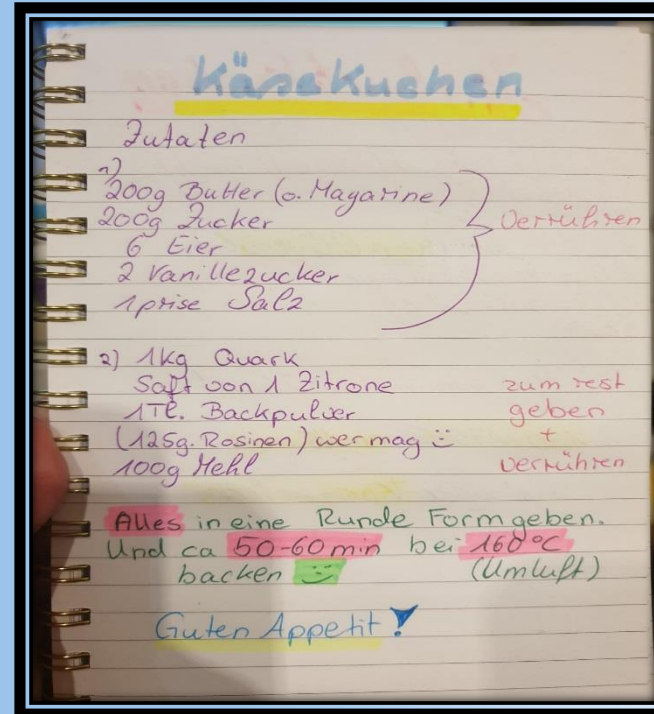 KäseKuchen
Zutaten
1)
200g Butter (o. Magarine)
200g Zucker
verrühren
6 Eier
2 Vanillezucker
1 prise Salz
2) 1Kg Quark
Saft von 1 Zitrone
zum rest
1Tl. Backpulver
geben
(125g. Rosinen) wer mag :)
+
100g Mehl
verrühren
Alles in eine Runde Form geben.
Und ca 50-60 min bei 160°C
backen :) (Umluft)
Guten Appetit!